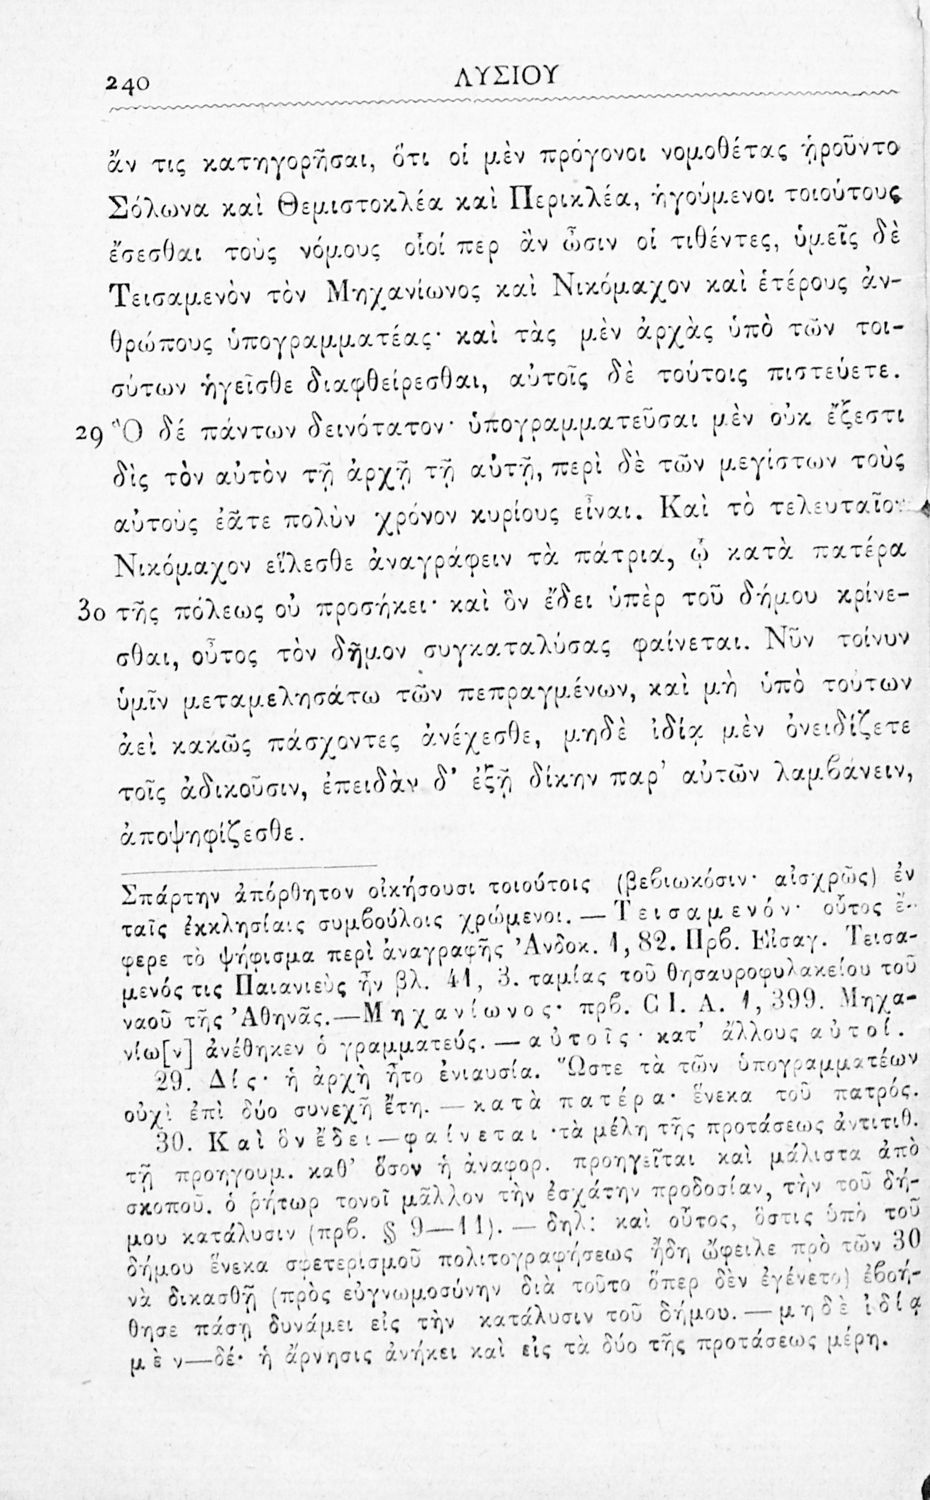 240 ΛΥΣΙΟΥ
ἄν τις κατηγορῆσαι, ὅτι οἱ μὲν πρόγονοι νομοθέτας ᾑροῦντο
Σόλωνα καὶ Θεμιστοκλέα καὶ Περικλέα, ἡγούμενοι τοιούτους
ἔσεσθαι τοὺς νόμους οἷοί περ ἂν ὦσιν οἱ τιθέντες, ὑμεῖς δὲ
Τεισαμενὸν τὸν Μηχανίωνος καὶ Νικόμαχον καὶ ἑτέρους ἀν-
θρώπους ὑπογραμματέας· καὶ τὰς μὲν ἀρχὰς ὑπὸ τῶν τοι-
ούτων ἡγεῖσθε διαφθείρεσθαι, αὐτοῖς δὲ τούτοις πιστεύετε.
29 Ὃ δέ πάντων δεινότατον· ὑπογραμματεῦσαι μὲν οὐκ ἔξεστι
δὶς τὸν αὐτὸν τῇ ἀρχῇ τῇ αὐτῇ, περὶ δὲ τῶν μεγίστων τοὺς
αὐτοὺς ἐᾶτε πολὺν χρόνον κυρίους εἶναι. Καὶ τὸ τελευταῖον
Νικόμαχον εἵλεσθε ἀναγράφειν τὰ πάτρια, ᾧ κατὰ πατέρα
30 τῆς πόλεως οὐ προσήκει· καὶ ὃν ἔδει ὑπὲρ τοῦ δήμου κρίνε-
σθαι, οὗτος τὸν δῆμον συγκαταλύσας φαίνεται. Νῦν τοίνυν
ὑμῖν μεταμελησάτω τῶν πεπραγμένων, καὶ μὴ ὑπὸ τούτων
ἀεὶ κακῶς πάσχοντες ἀνέχεσθε, μηδὲ ἰδίᾳ μὲν ὀνειδίζετε
τοῖς ἀδικοῦσιν, ἐπειδὰν δ' ἐξῇ δίκην παρ' αὐτῶν λαμβάνειν,
ἀποψηφίζεσθε.
Σπάρτην ἀπόρθητον οἰκήσουσι τοιούτοις (βεβιωκόσιν· αἰσχρῶς) ἐν
ταῖς ἐκκλησίαις συμβούλοις χρώμενοι. — Τεισαμενόν· οὗτος ἔ-
φερε τὸ ψήφισμα περὶ ἀναγραφῆς Ἀνδοκ. 1, 82. Πρβ. Εἰσαγ. Τεισα-
μενός τις Παιανιεὺς ἦν βλ. 41, 3. ταμίας τοῦ θησαυροφυλακείου τοῦ
ναοῦ τῆς Ἀθηνᾶς.—Μηχανίωνος· πρβ. C I. A. 1, 399. Μηχα-
νίω[ν] ἀνέθηκεν ὁ γραμματεύς. — αὐτοῖς· κατ' ἄλλους αὐτοί.
29. Δίς· ἡ ἀρχὴ ἦτο ἐνιαυσία. Ὥστε τὰ τῶν ὑπογραμματέων
οὐχὶ ἐπὶ δύο συνεχῆ ἔτη. — κατὰ πατέρα· ἕνεκα τοῦ πατρός.
30. Καὶ ὃν ἔδει — φαίνεται ·τὰ μέλη τῆς προτάσεως ἀντιτιθ.
τῇ προηγουμ. καθ' ὅσον ἡ ἀναφορ. προηγεῖται καὶ μάλιστα ἀπὸ
σκοποῦ. ὁ ῥήτωρ τονοῖ μᾶλλον τὴν ἐσχάτην προδοσίαν, τὴν τοῦ δή-
μου κατάλυσιν (πρβ. § 9—11). — δηλ: καὶ οὗτος, ὅστις ὑπὸ τοῦ
δήμου ἕνεκα σφετερισμοῦ πολιτογραφήσεως ἤδη ὤφειλε πρὸ τῶν 30
νὰ δικασθῇ (πρὸς εὐγνωμοσύνην διὰ τοῦτο ὅπερ δὲν ἐγένετο) ἐβοή-
θησε πάσῃ δυνάμει εἰς τὴν κατάλυσιν τοῦ δήμου. — μηδὲ ἰδίᾳ
μὲν—δέ· ἡ ἄρνησις ἀνήκει καὶ εἰς τὰ δύο τῆς προτάσεως μέρη.